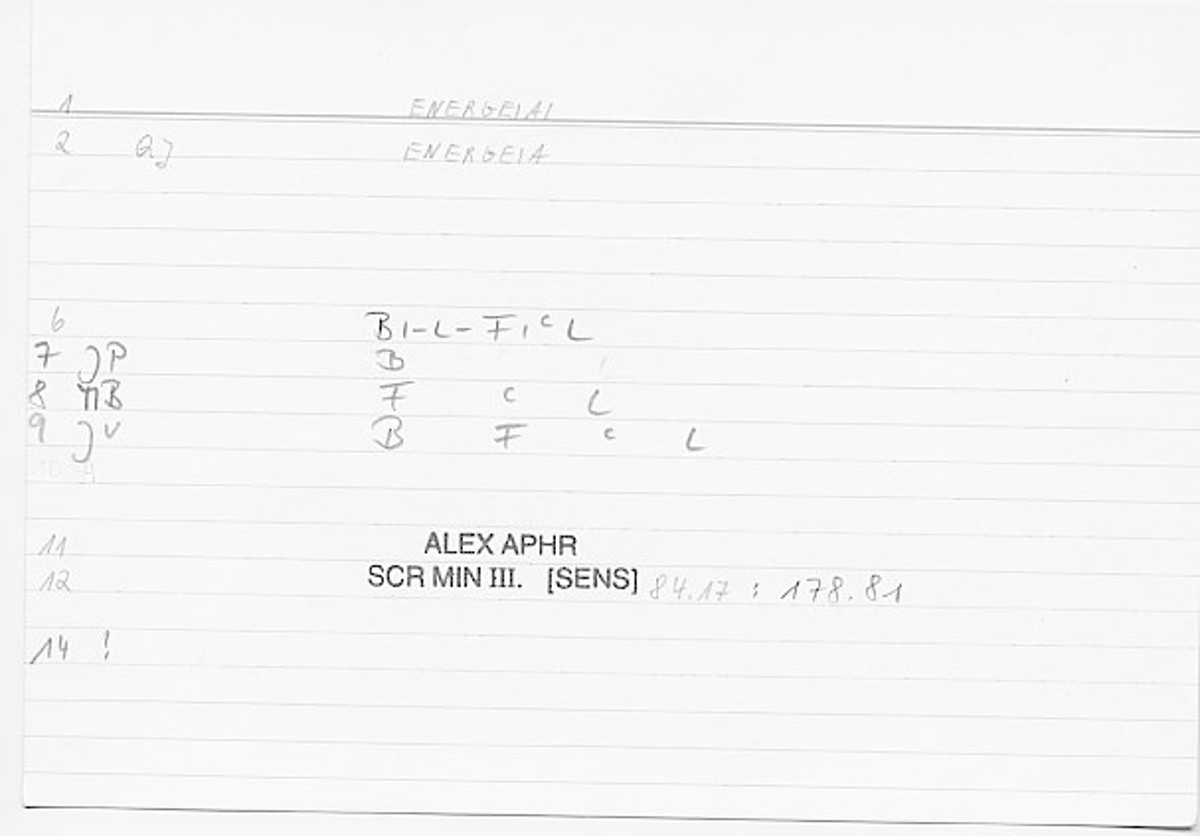 1 ENERGEIAI
2 QJ ENERGEIA
6 B I-L- F I C L
7 JP B
8 ΠB F C L
9 JV B F C L
10 A
11 ALEX APHR
12 SCR MIN III. [SENS] 84.17 : 178.81
14 !